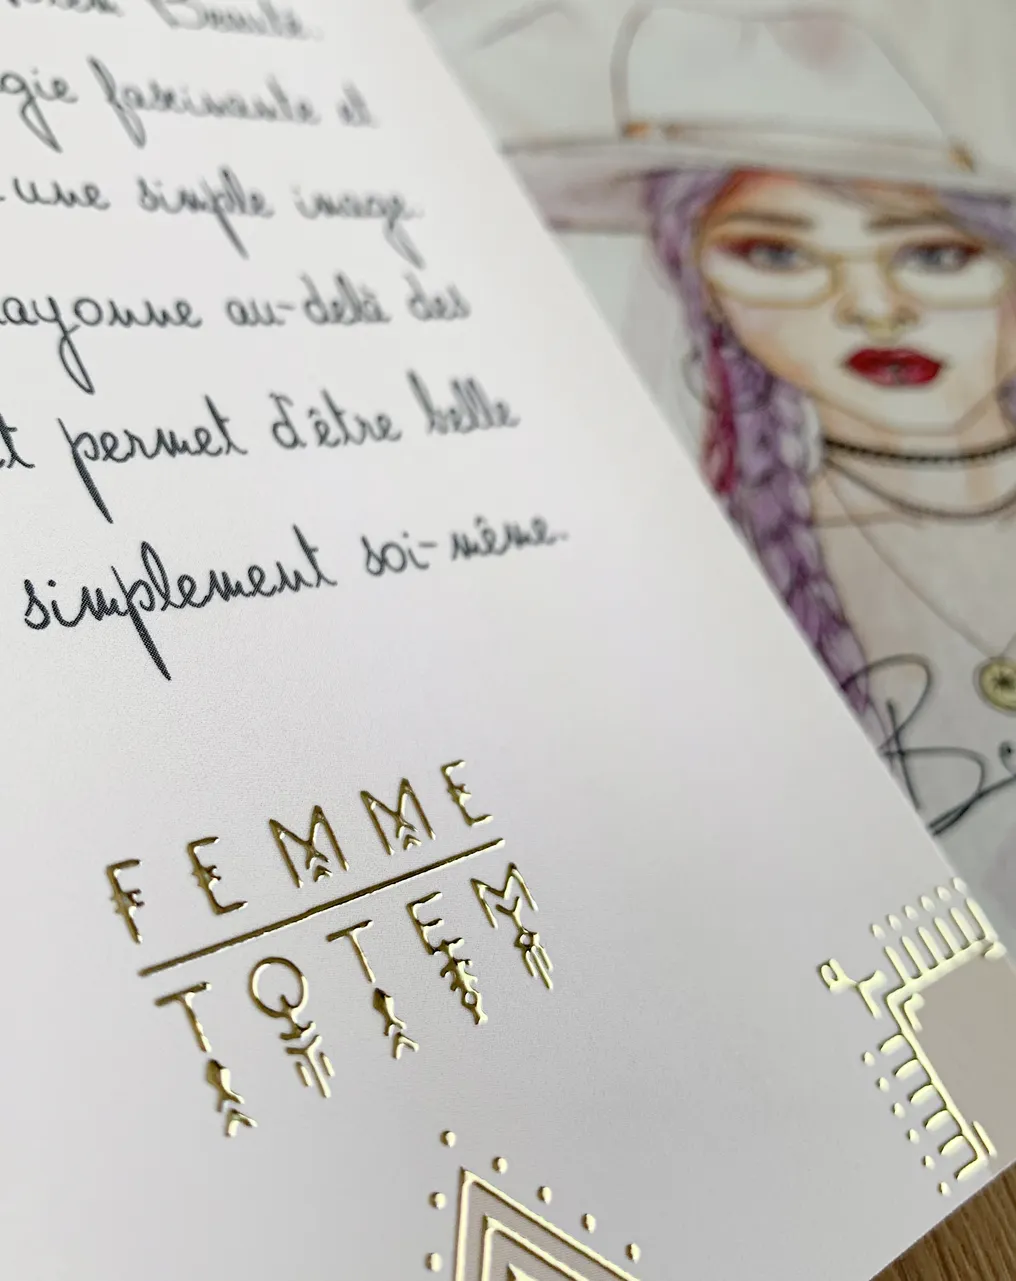 Beauté.
fascinante et
une simple image.
rayonne au-delà des
permet d'être belle
simplement soi-même.
FEMME
TOTEM